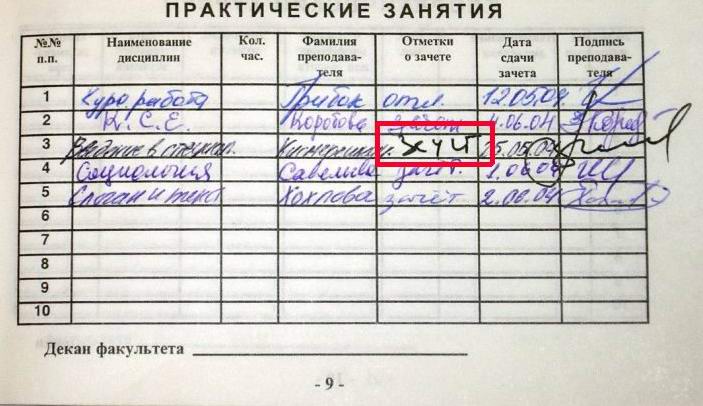 ПРАКТИЧЕСКИЕ ЗАНЯТИЯ
№№ п.п. Наименование дисциплин Кол. час. Фамилия преподава-теля Отметки о зачете Дата сдачи зачета Подпись преподава-теля
1 Курс. работа Грибок отл. 12.05.04
2 К.С.Е. Коротова зачёт 4.06.04
3 Введение в специал. зчт
4 Социология Савельева зачёт.
5 Слоган и текст Хохлова зачёт 2.06.04
6
7
8
9
10
Декан факультета
- 9 -